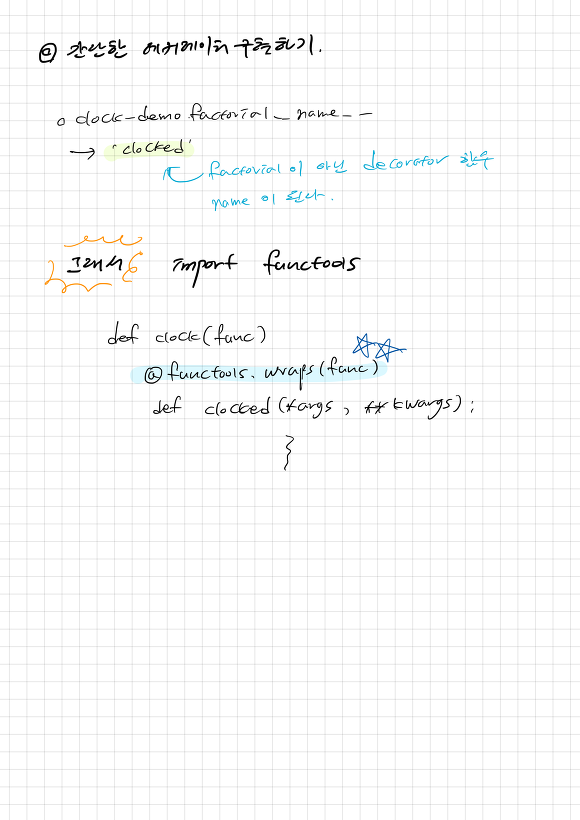 @ 간단한 데커레이터 구현하기.
o clock-demo factorial _ name _ _
→ 'clocked'
factorial이 아닌 decorator 함수
name이 된다.
그래서 import functools
def clock(func)
@functools.wraps(func)
def clocked(*args, **kwargs);